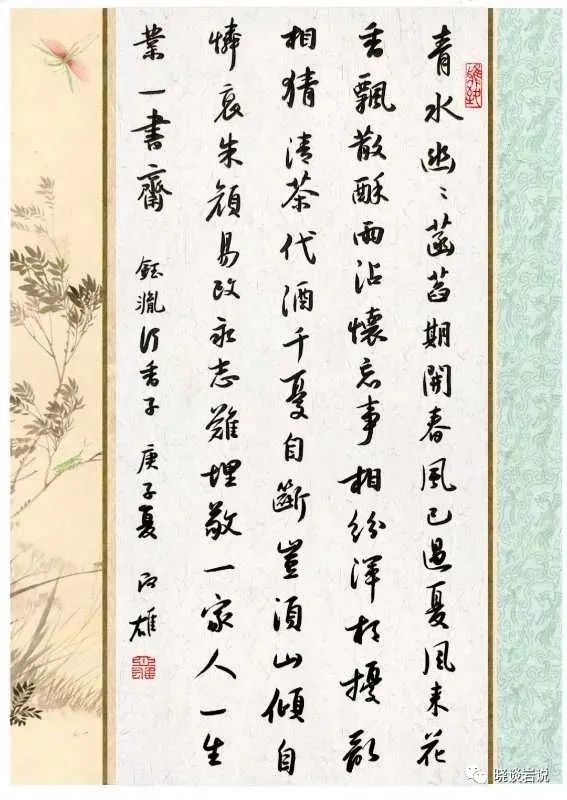 青水幽〻菡萏期開春風已過夏風來花
香飄散酥雨沾懷忘事相紛渾相擾都
相猜清茶代酒千憂自斷豈須山傾自
憐哀朱顏易改永志難埋敬一家人一生
業一書齋 鈺胤行香子 庚子夏 雄
晓谈岩说